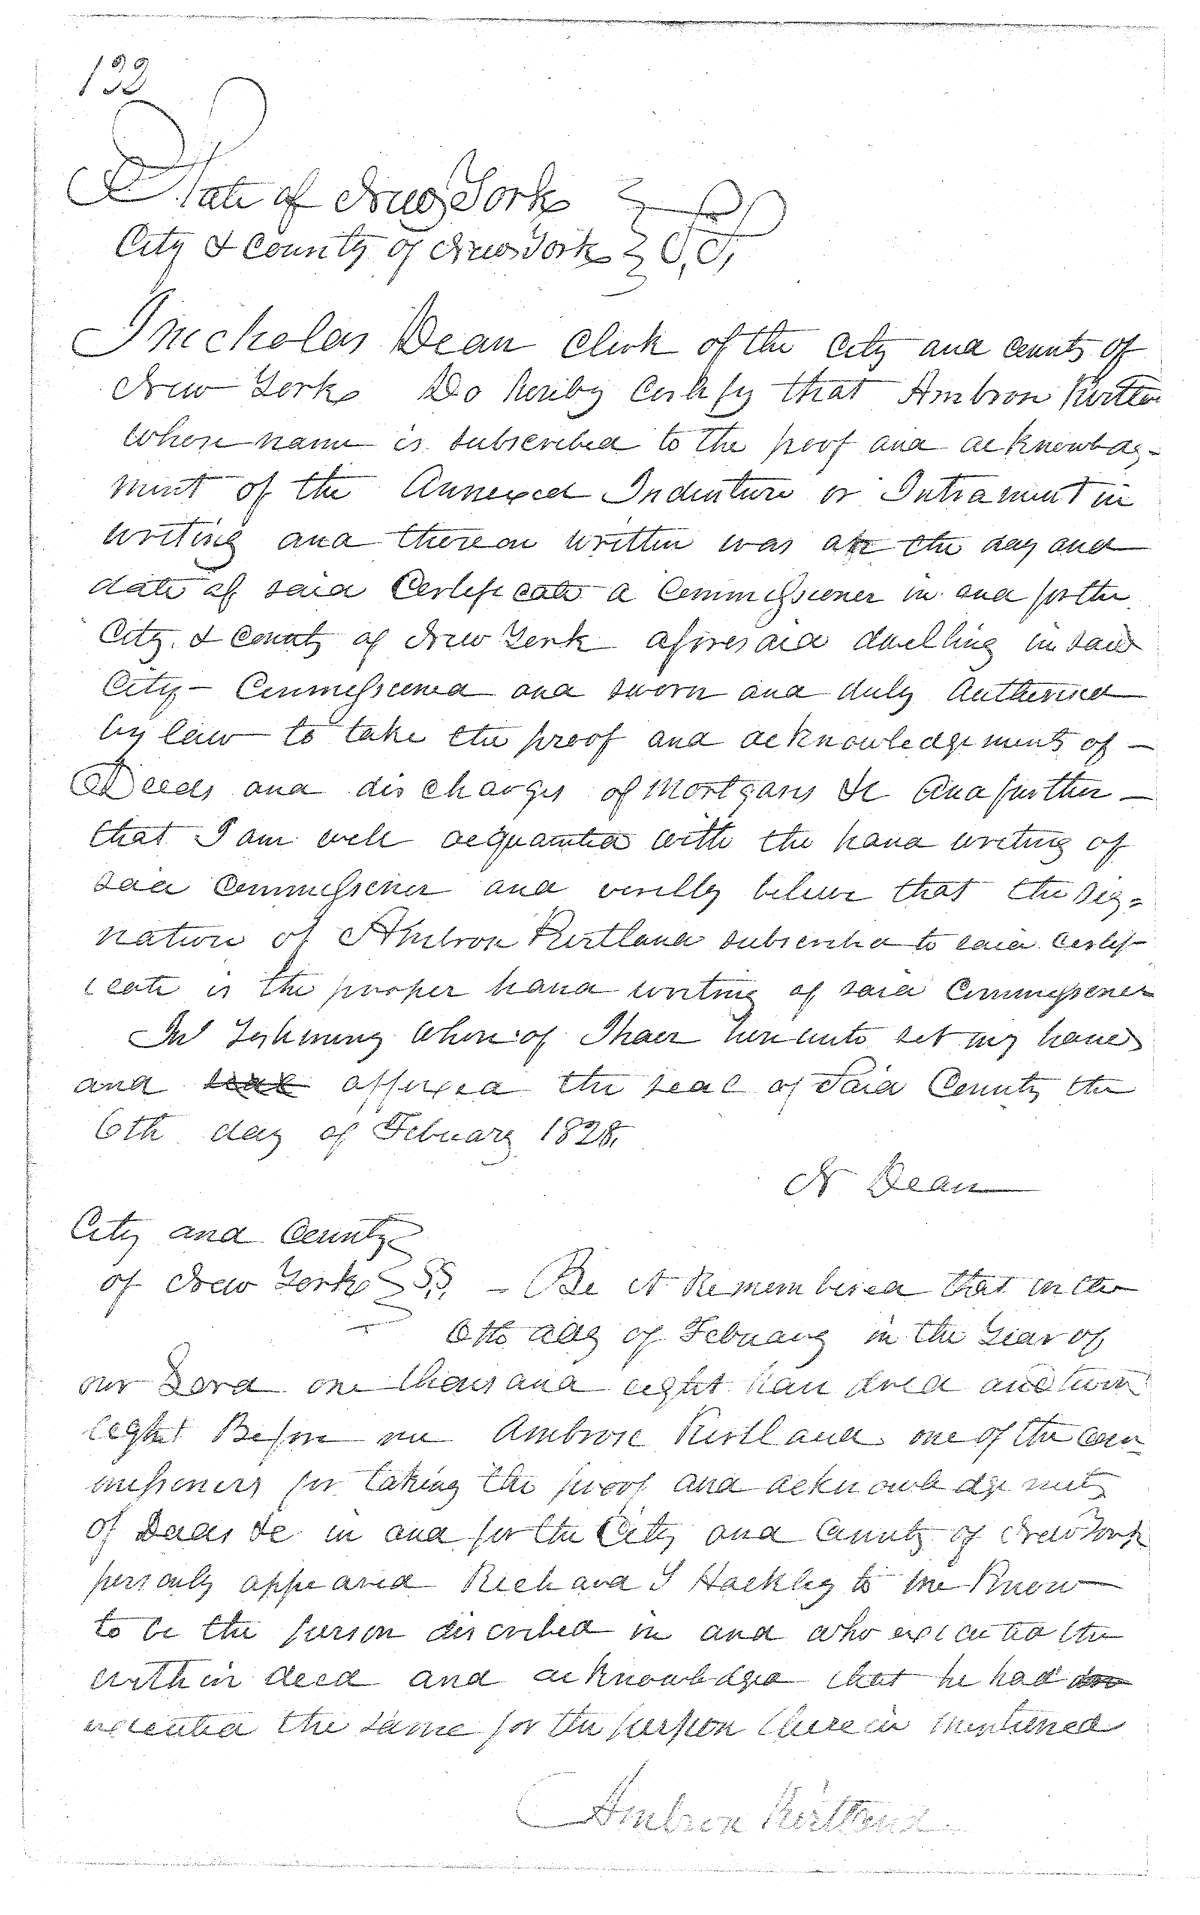 132
State of New York
City & County of New York } S.S.
I Nicholas Dean Clerk of the City and County of
New York Do hereby Certify that Ambrose Kirtlan
whose name is subscribed to the proof and acknowledg-
ment of the Annexed Indenture or Intrament in
writing and thereon written was at the day and
date of said Certificate a Commissioner in and for the
City & County of New York aforesaid dwelling in said
City - Commissioned and sworn and duly Authorised
by law to take the proof and acknowledgements of -
Deeds and discharges of Mortgages &c And further -
that I am well acquainted with the hand writing of
said Commissioner and verily believe that the sig=
nation of Ambrose Kirtland subscribed to said Certif-
icate is the proper hand writing of said Commissioner
In Testimony Whereof I have hereunto set my hand
and seal affixed the seal of Said County the
6th day of Febuary 1828.
N Dean
City and County
of New York } SS. - Be it Remembered that on the
6th day of Febuary in the Year of
our Lord one thousand eight hundred and twen
eight Before me Ambrose Kirtland one of the com
missioners for taking the proof and acknowledgments
of Deeds &c in and for the City and County of New York
personly appeared Richard S Hackley to me Know
to be the person discribed in and who executed the
within deed and acknowledged that he had
executed the same for the purpose therein mentioned
Ambrose Kirtland